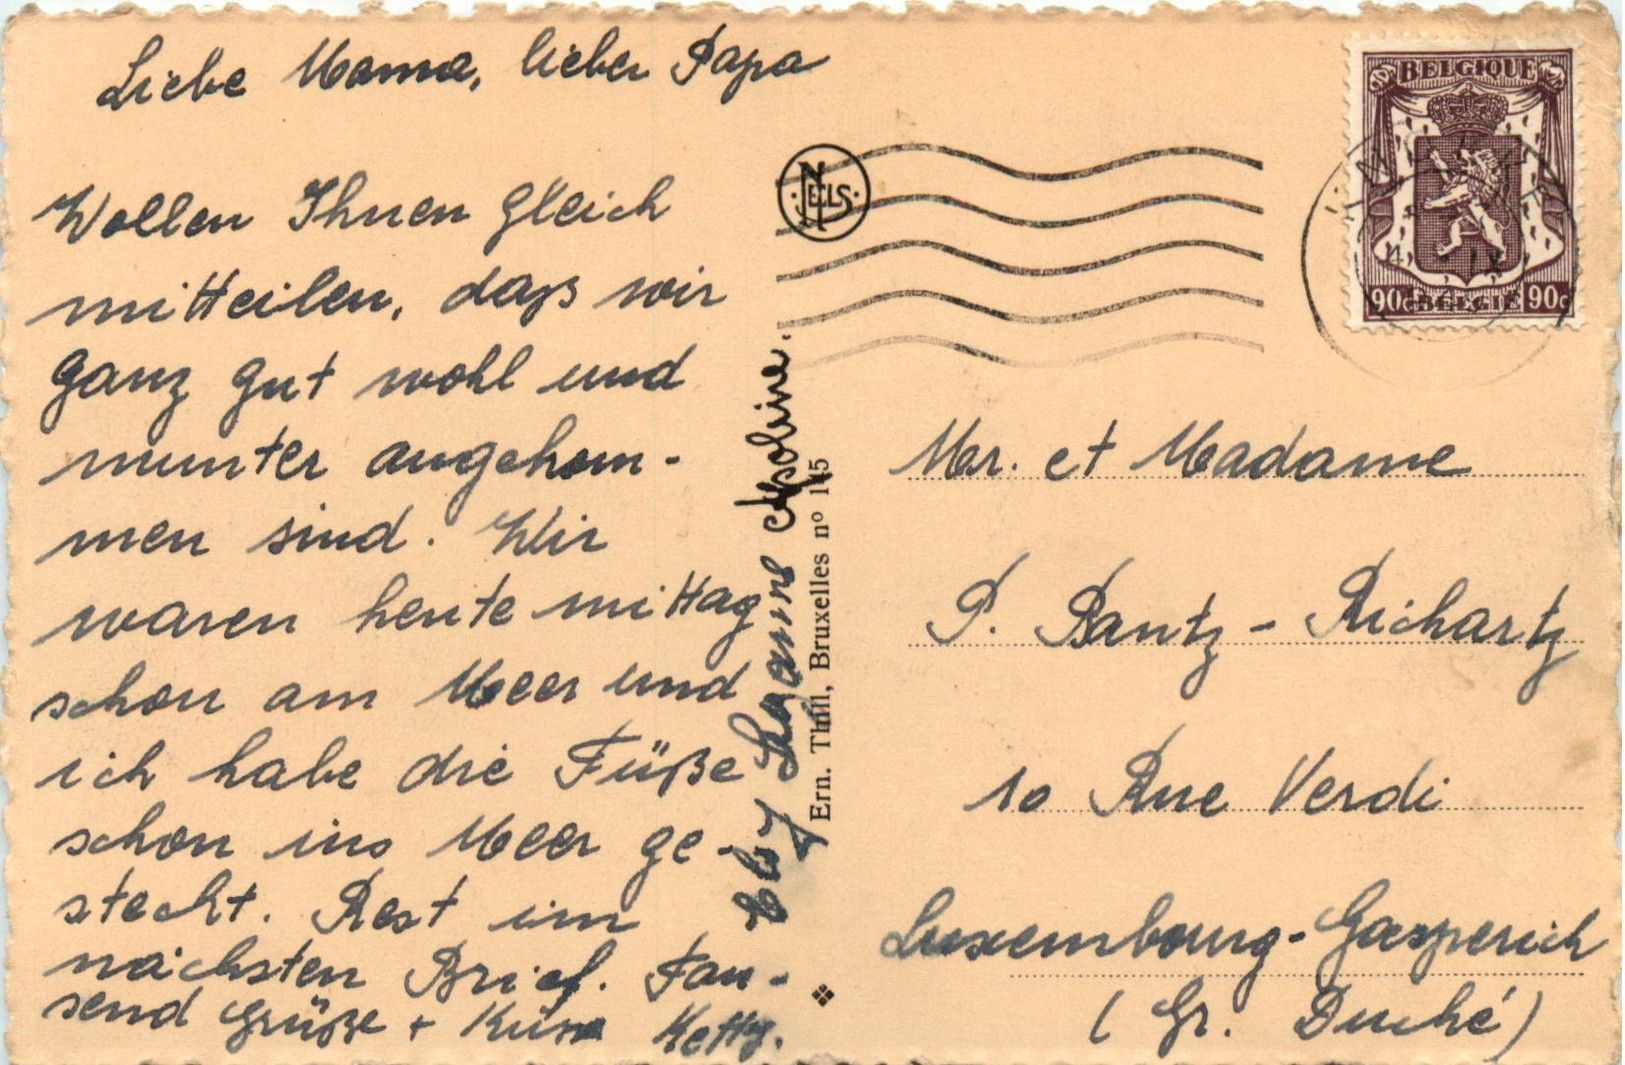 Liebe Mama, lieber Papa
Wollen Ihnen gleich
mitteilen, dass wir
ganz gut wohl und
munter angekom-
men sind. Wir
waren heute mittag
schon am Meer und
ich habe die Füße
schon ins Meer ge-
steckt. Rest im
nächsten Brief. Tau-
send Grüße + Küsse Ketty.
NELS
Ern. Thill, Bruxelles nº 145
BELGIQUE
90c BELGIE 90c
Mr. et Madame
P. Pantz - Richartz
10 Rue Verdi
Luxembourg-Gasperich
(Gr. Duché)